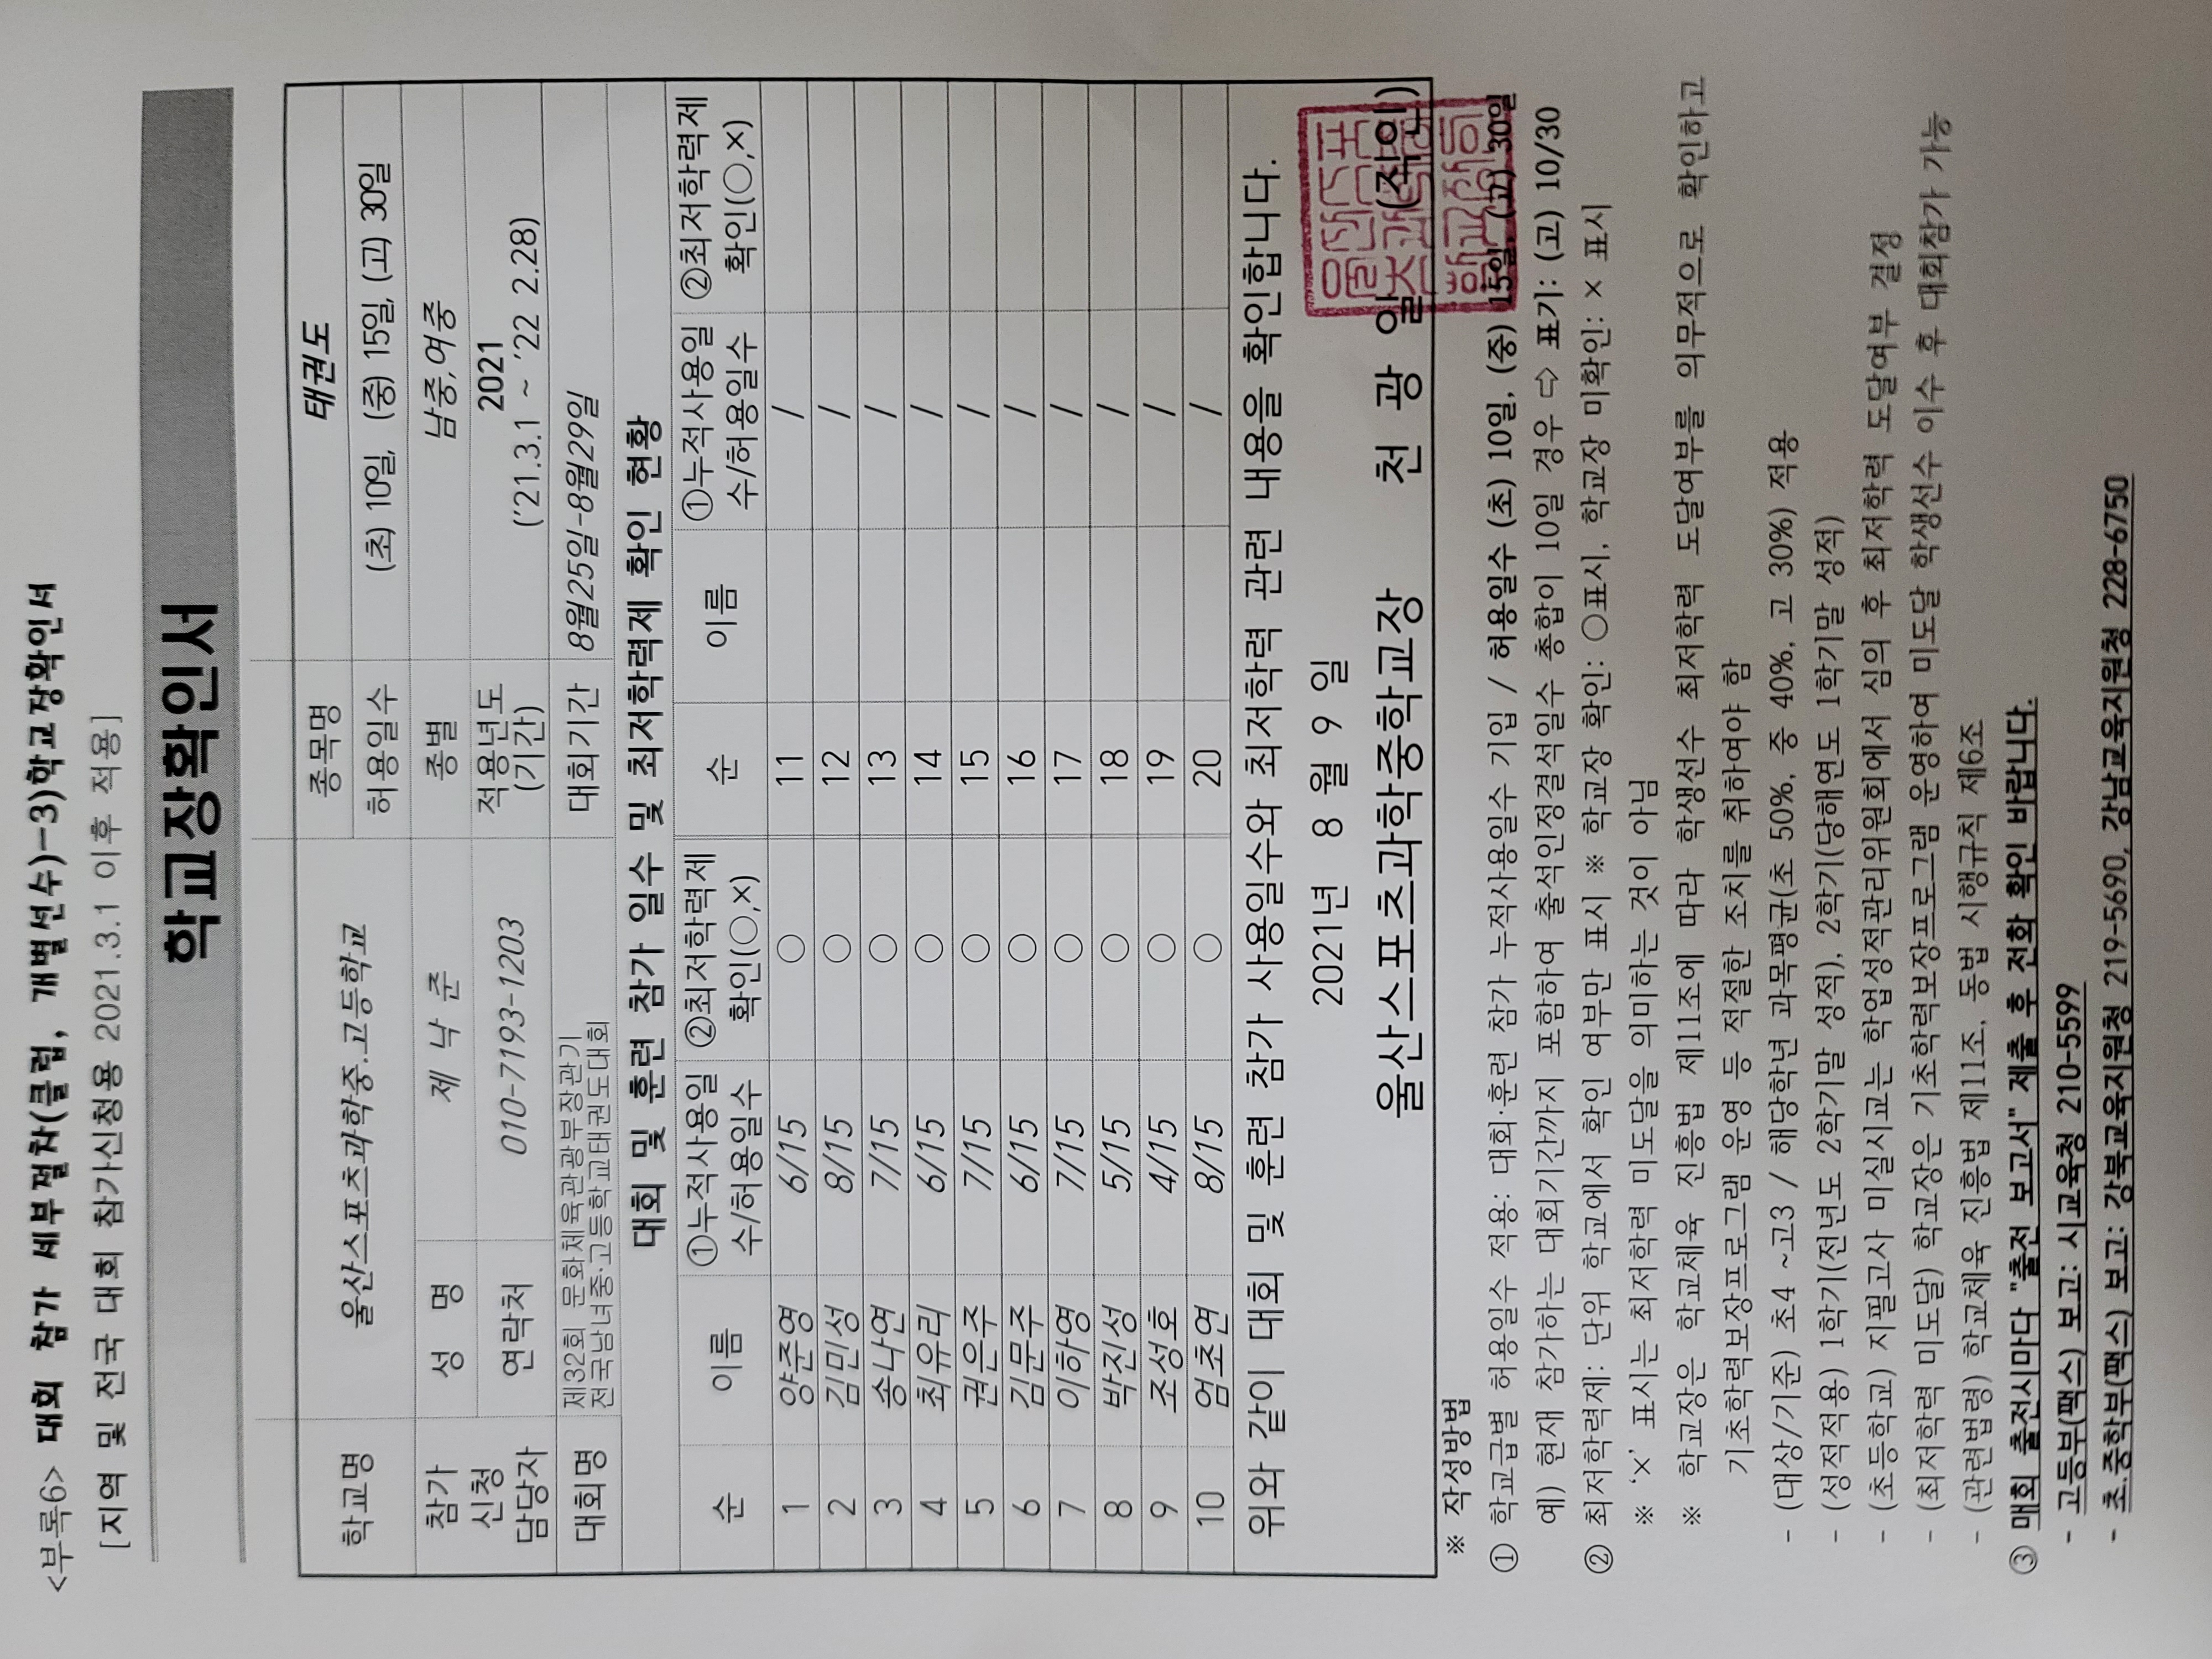 <부록6> 대회 참가 세부절차(클럽, 개별선수)-3)학교장확인서
[지역 및 전국 대회 참가신청용 2021.3.1 이후 적용]
학교장확인서
학교명 울산스포츠과학중.고등학교 종목명 태권도
허용일수 (초) 10일, (중) 15일, (고) 30일
참가 신청 담당자 성 명 제 낙 준 종별 남중,여중
연락처 010-7193-1203 적용년도 (기간) 2021 ('21.3.1 ~ '22 2.28)
대회명 제32회 문화체육관광부장관기 전국남녀중·고등학교태권도대회 대회기간 8월25일-8월29일
대회 및 훈련 참가 일수 및 최저학력제 확인 현황
순 이름 ①누적사용일수/허용일수 ②최저학력제 확인(○,×) 순 이름 ①누적사용일수/허용일수 ②최저학력제 확인(○,×)
1 양준영 6/15 ○ 11 /
2 김민성 8/15 ○ 12 /
3 송나연 7/15 ○ 13 /
4 최유리 6/15 ○ 14 /
5 권은주 7/15 ○ 15 /
6 김문주 6/15 ○ 16 /
7 이하영 7/15 ○ 17 /
8 박진성 5/15 ○ 18 /
9 조성호 4/15 ○ 19 /
10 엄초연 8/15 ○ 20 /
위와 같이 대회 및 훈련 참가 사용일수와 최저학력 관련 내용을 확인합니다.
2021년 8 월 9 일
울산스포츠과학중학교장 천 광 일 (직인)
※ 작성방법
① 학교급별 허용일수 적용: 대회·훈련 참가 누적사용일수 기입 / 허용일수 (초) 10일, (중) 15일, (고) 30일
예) 현재 참가하는 대회기간까지 포함하여 출석인정결석일수 총합이 10일 경우 ⇨ 표기: (고) 10/30
② 최저학력제: 단위 학교에서 확인 여부만 표시 ※ 학교장 확인: ○표시, 학교장 미확인: × 표시
※ '×' 표시는 최저학력 미도달을 의미하는 것이 아님
※ 학교장은 학교체육 진흥법 제11조에 따라 학생선수 최저학력 도달여부를 의무적으로 확인하고
기초학력보장프로그램 운영 등 적절한 조치를 취하여야 함
- (대상/기준) 초4 ~고3 / 해당학년 과목평균(초 50%, 중 40%, 고 30%) 적용
- (성적적용) 1학기(전년도 2학기말 성적), 2학기(당해연도 1학기말 성적)
- (초등학교) 지필고사 미실시교는 학업성적관리위원회에서 심의 후 최저학력 도달여부 결정
- (최저학력 미도달) 학교장은 기초학력보장프로그램 운영하여 미도달 학생선수 이수 후 대회참가 가능
- (관련법령) 학교체육 진흥법 제11조, 동법 시행규칙 제6조
③ 매회 출전시마다 "출전 보고서" 제출 후 전화 확인 바랍니다.
- 고등부(팩스) 보고: 시교육청 210-5599
- 초.중학부(팩스) 보고: 강북교육지원청 219-5690, 강남교육지원청 228-6750